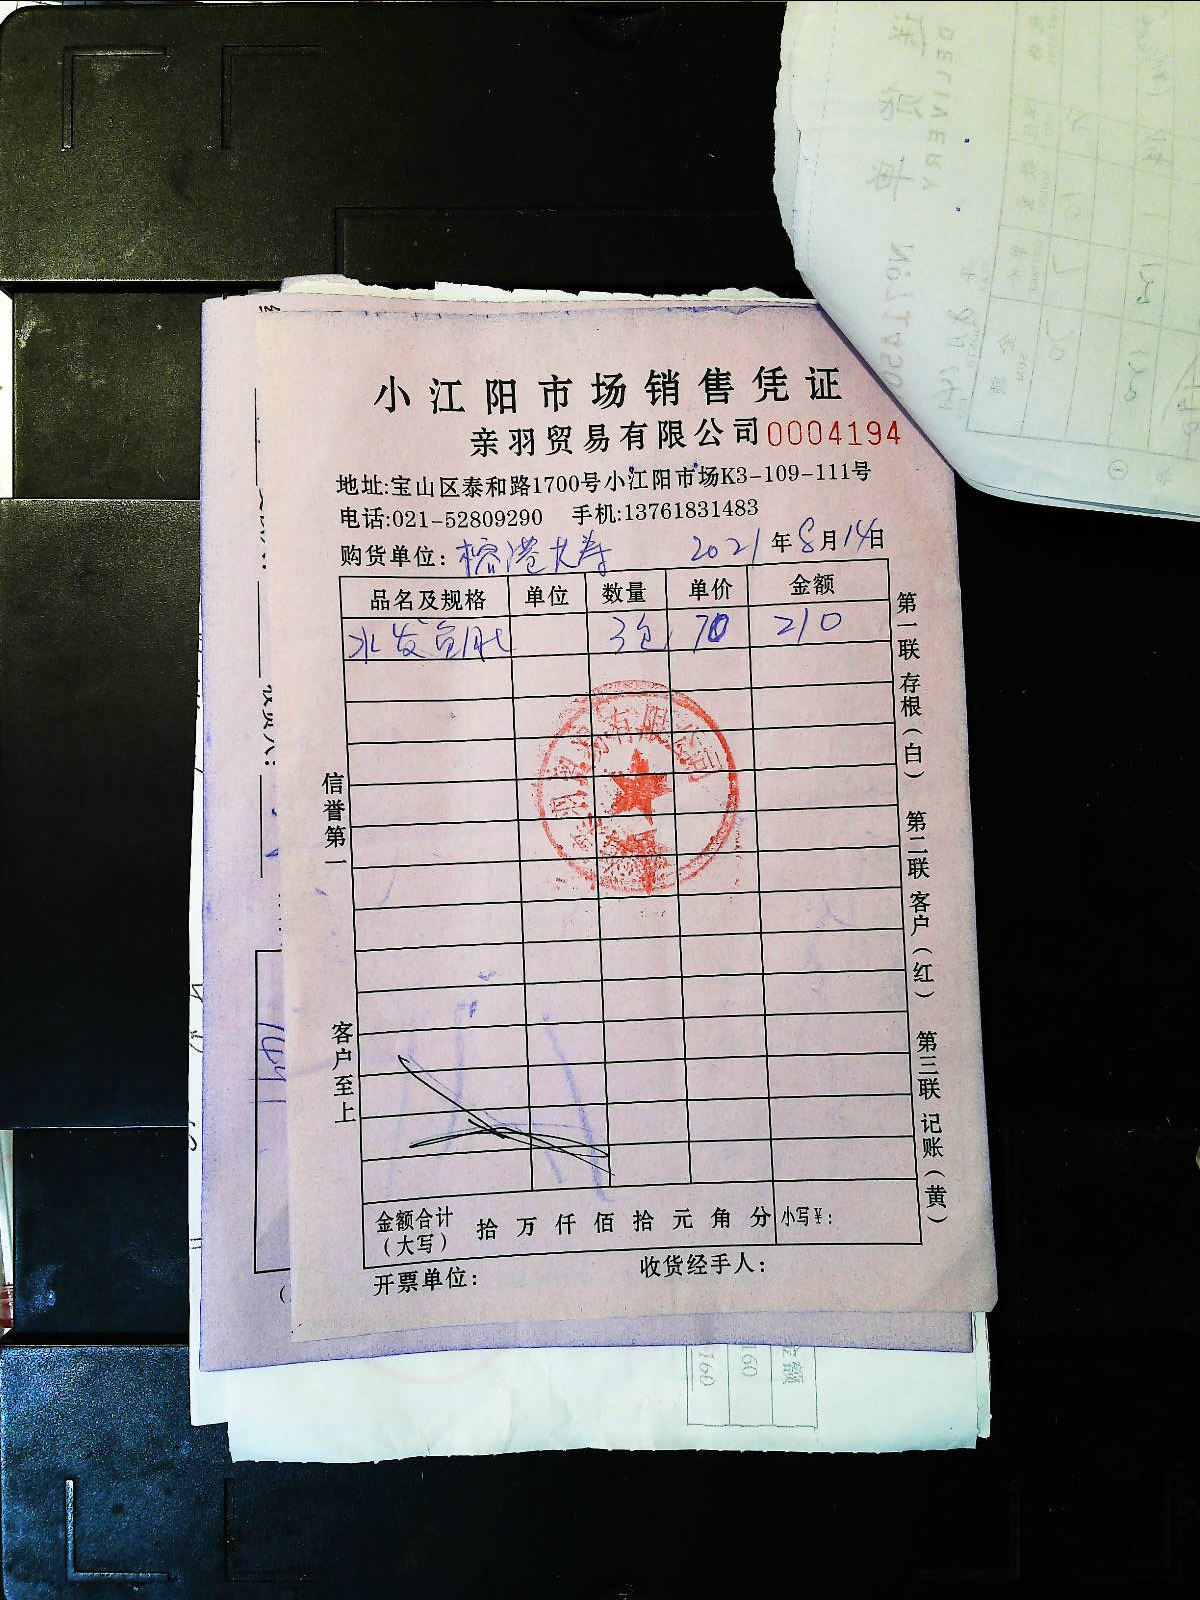 小江阳市场销售凭证
亲羽贸易有限公司 0004194
地址:宝山区泰和路1700号小江阳市场K3-109-111号
电话:021-52809290 手机:13761831483
购货单位: 榕港大寿 2021年8月14日
品名及规格 单位 数量 单价 金额
水发鱼肚 3包 70 210
信誉第一
客户至上
第一联 存根(白) 第二联 客户(红) 第三联 记账(黄)
金额合计(大写) 拾 万 仟 佰 拾 元 角 分 小写¥:
开票单位: 收货经手人:
贸易有限公司
DELIVERY
金额
160
160